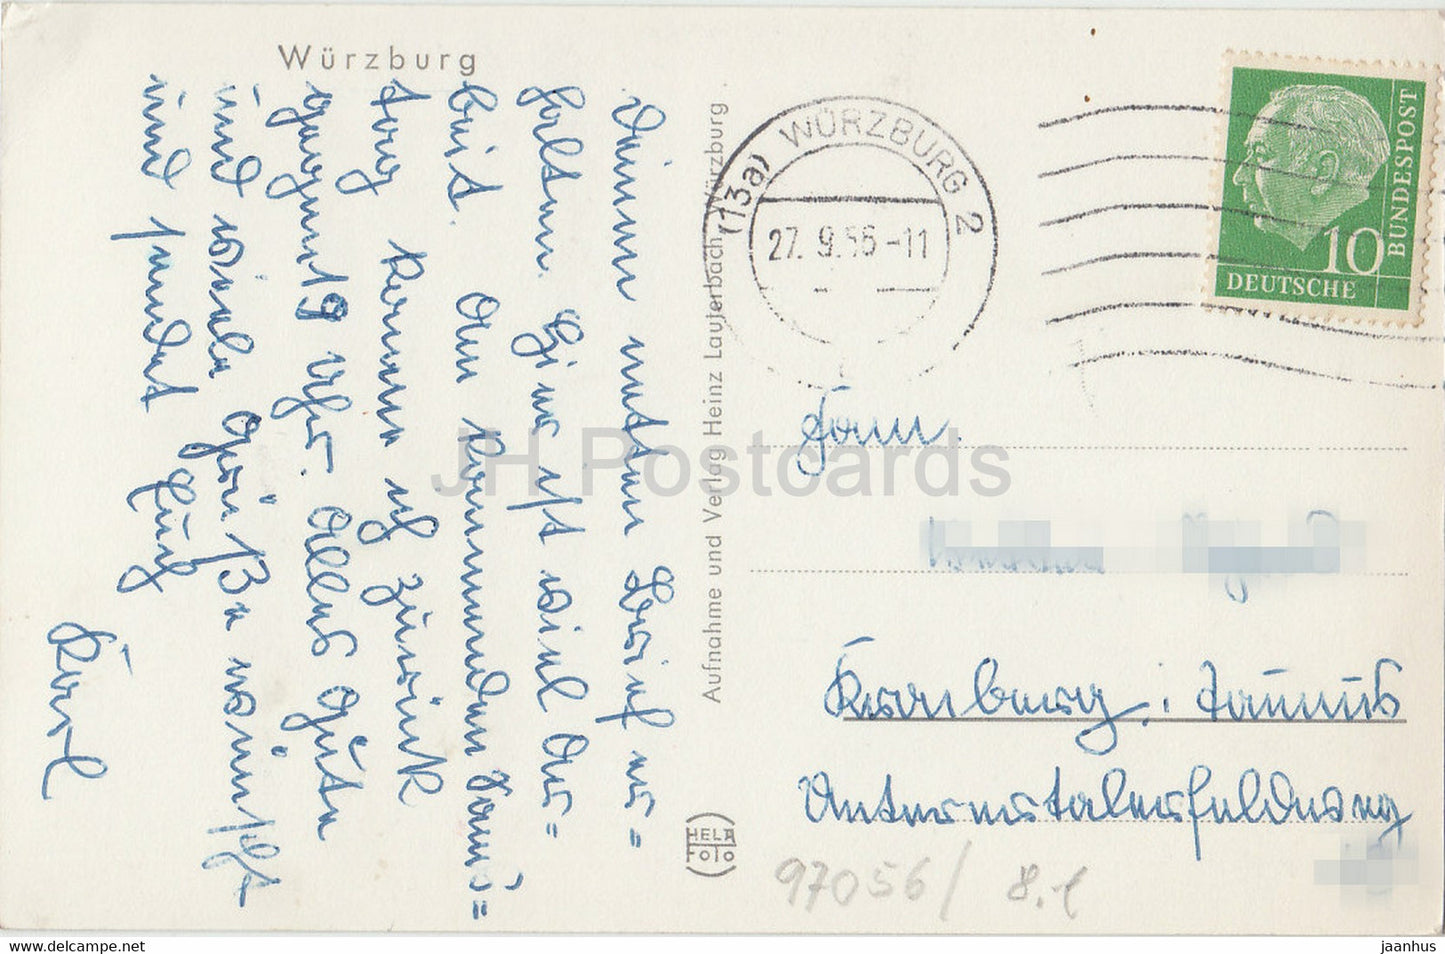 Würzburg
Deinen netten Brief er=
halten. Hier ist viel Ar=
beit. Am kommenden Sams=
tag komm ich zurück
gegen 19 Uhr. Alles Gute
und viele Grüße wünscht
und sendet Euch
Karl
Aufnahme und Verlag Heinz Lauterbach, Würzburg
HELA
FOTO
(13a) WÜRZBURG 2
27. 9. 56 -11
10
DEUTSCHE
BUNDESPOST
Fam.
Kronberg i. Taunus
97056/ 8.1
JH Postcards
HIP POSTCARD
jaanhus